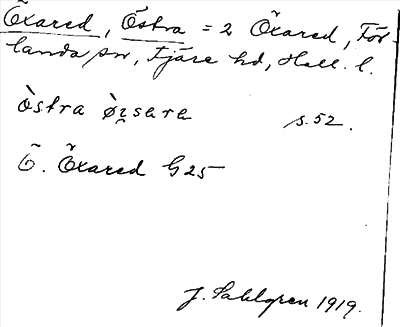 Öxared, Östra = 2 Öxared, För-
landa sn, Fjäre hd, Hall. l.
òstra ø̀ʟsara s.52.
Ö. Öxared G25
J. Sahlgren 1919.